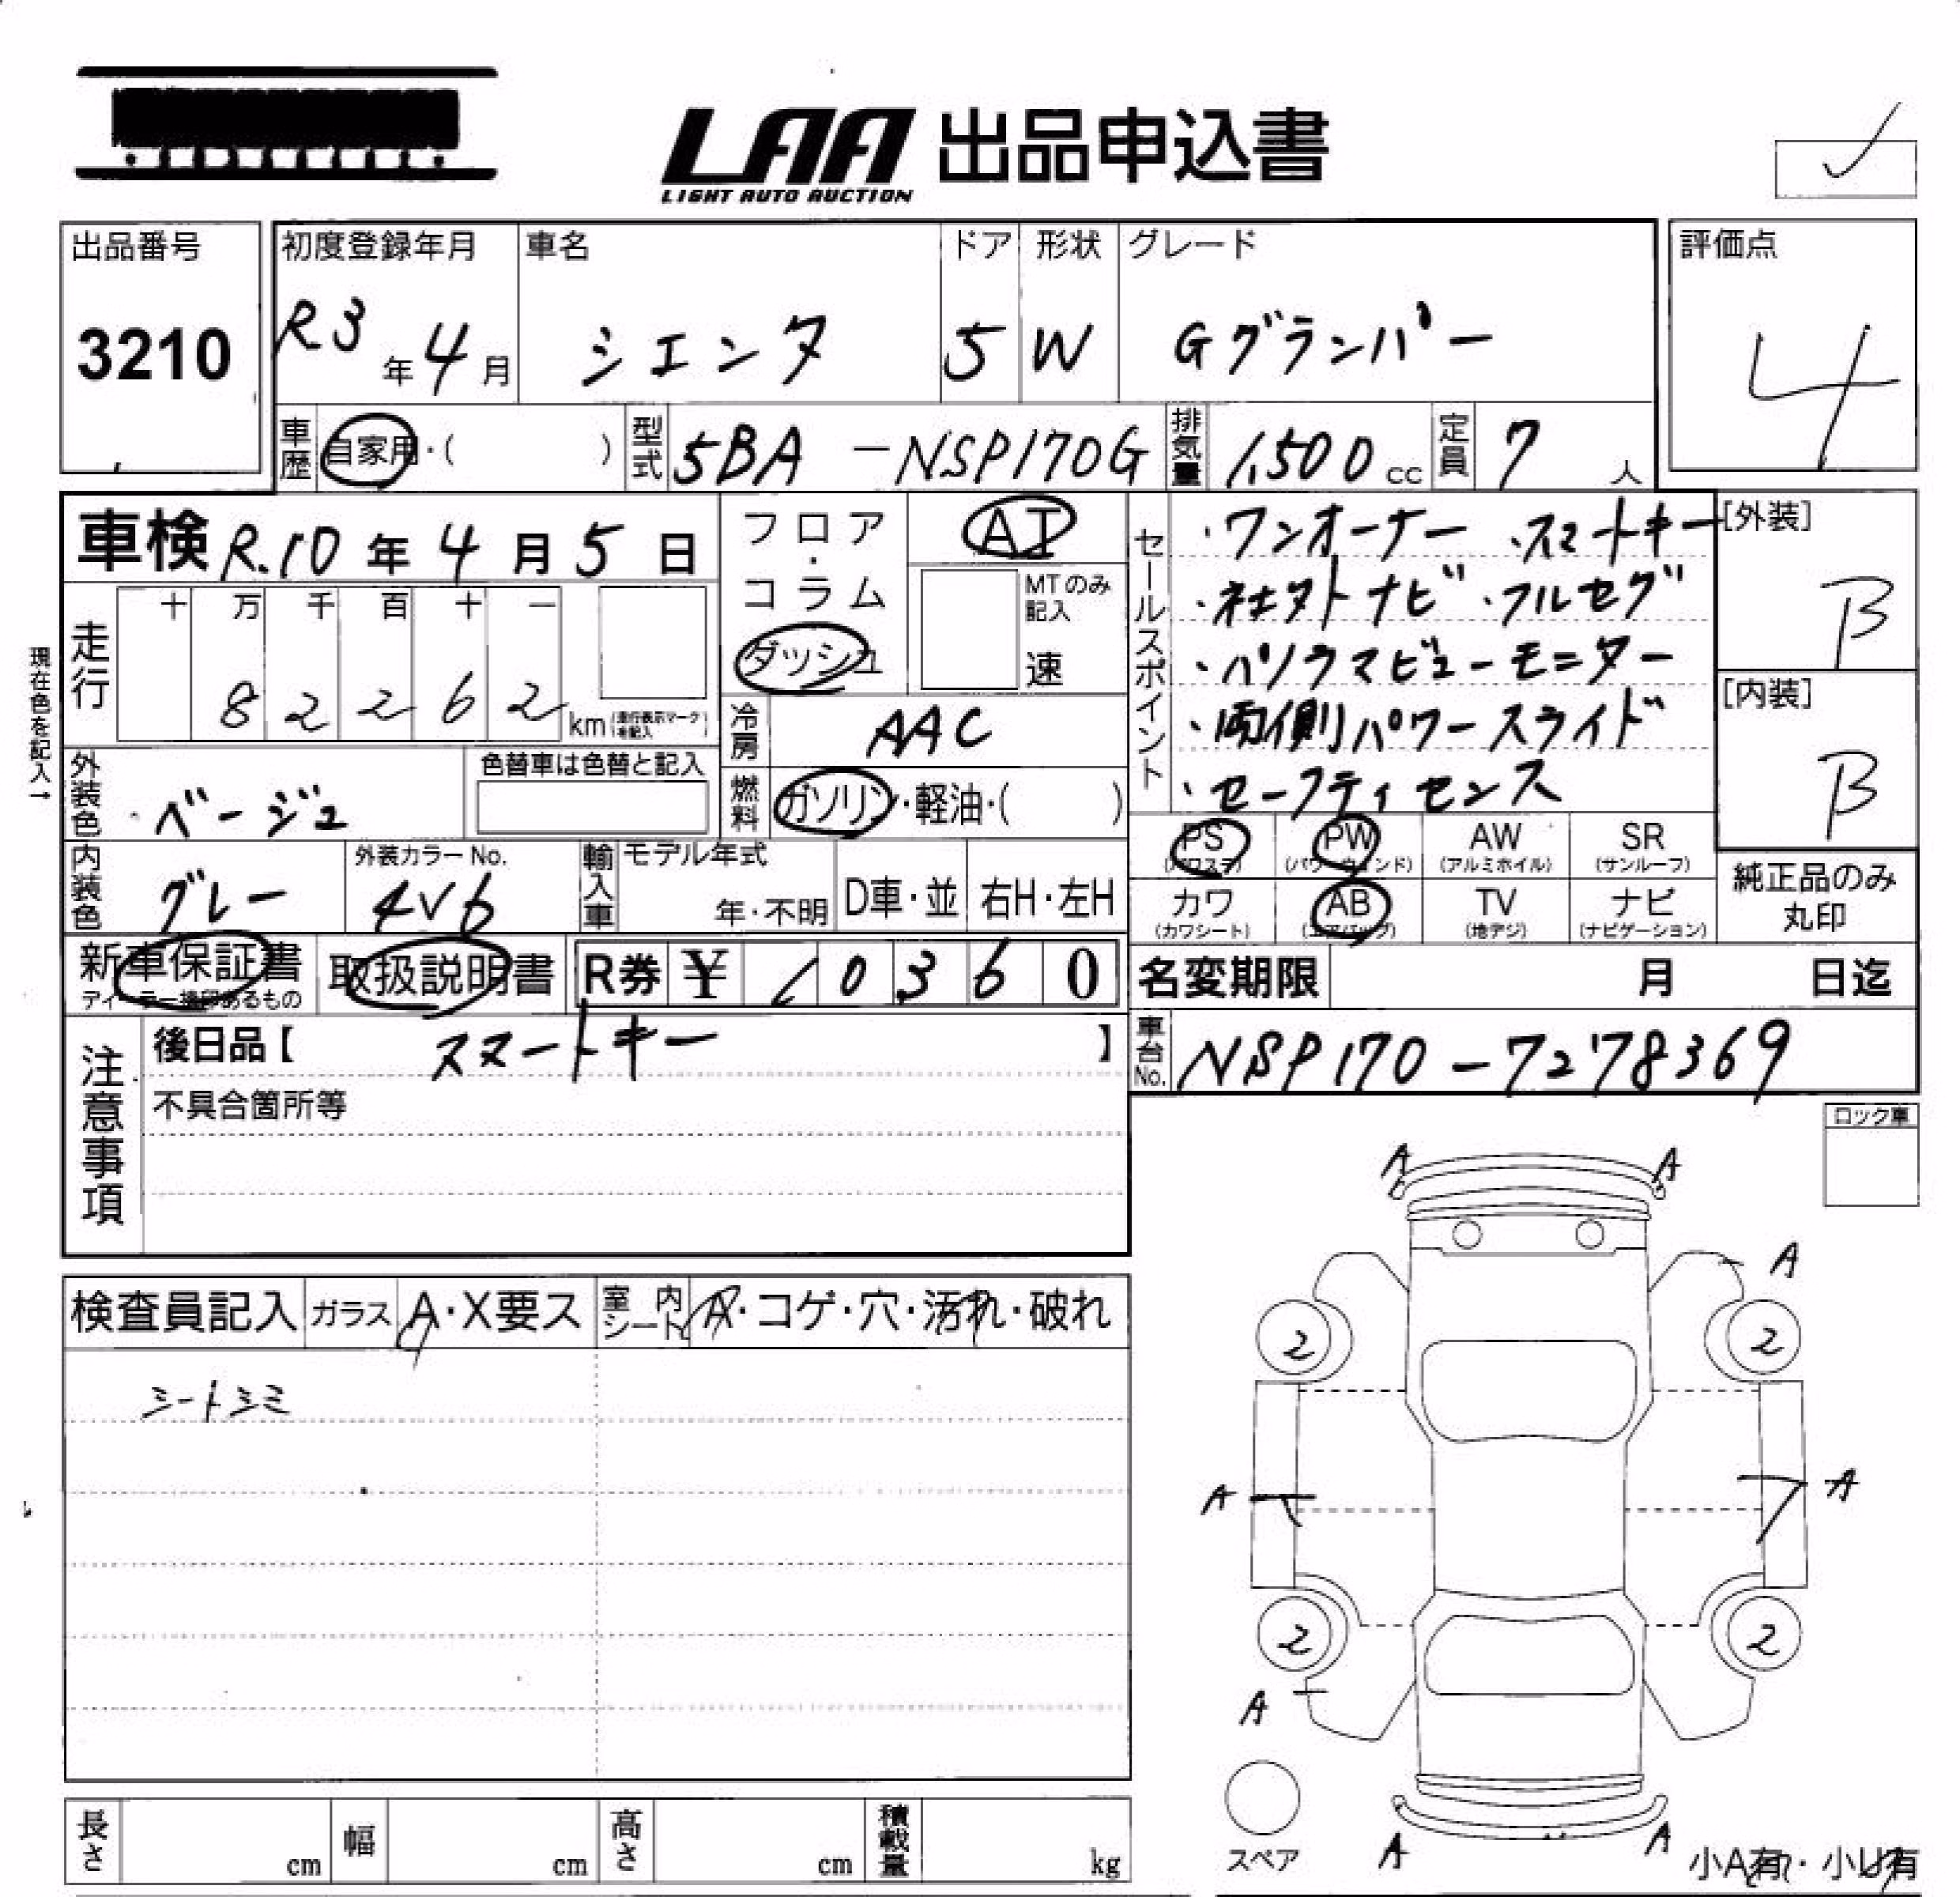 LAA 出品申込書
LIGHT AUTO AUCTION
出品番号
3210
初度登録年月
R3年4月
車名
シエンタ
ドア
5
形状
W
グレード
Gグランパー
評価点
4
車歴 自家用・( )
型式 5BA-NSP170G
排気量 1,500cc
定員 7人
車検 R.10年4月5日
走行
十 万 千 百 十 一
8 2 2 6 2 km (走行表示マークを記入)
現在色を記入→
外装色 ベージュ
色替車は色替と記入
内装色 グレー
外装カラーNo. 4V6
輸入車 モデル年式 年・不明 D車・並 右H・左H
フロア・コラム
ダッシュ
AT
MTのみ記入
速
冷房 AAC
燃料 ガソリン・軽油・( )
セールスポイント
・ワンオーナー ・スマートキー
・社外ナビ ・フルセグ
・パノラマビューモニター
・両側パワースライド
・セーフティセンス
[外装]
B
[内装]
B
PS (パワステ) PW (パワーウィンド) AW (アルミホイル) SR (サンルーフ)
カワ (カワシート) AB (エアバッグ) TV (地デジ) ナビ (ナビゲーション)
純正品のみ丸印
新車保証書
ディーラー捺印あるもの
取扱説明書
R券 ¥ 10360
名変期限 月 日迄
車台No. NSP170-7278369
注意事項
後日品【 スマートキー 】
不具合箇所等
ロック車
検査員記入 ガラス A・X要ス 室内シート A・コゲ・穴・汚れ・破れ
シートシミ
A A
A
2 2
A A
2 2
A
スペア
A A
小A有・小U有
長さ cm 幅 cm 高さ cm 積載量 kg